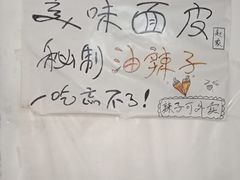 美味面皮
秘制油辣子
一吃忘不了!
辣子可外卖